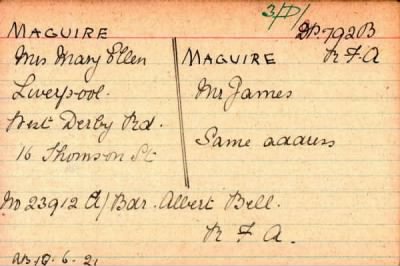 3/D/
DP. 792B
R F A
MAGUIRE
Mrs Mary Ellen
Liverpool.
West Derby Rd.
16 Thomson St
MAGUIRE
Mr James
Same address
No 23912 A/Bdr. Albert Bell.
R F A.
19.6.21